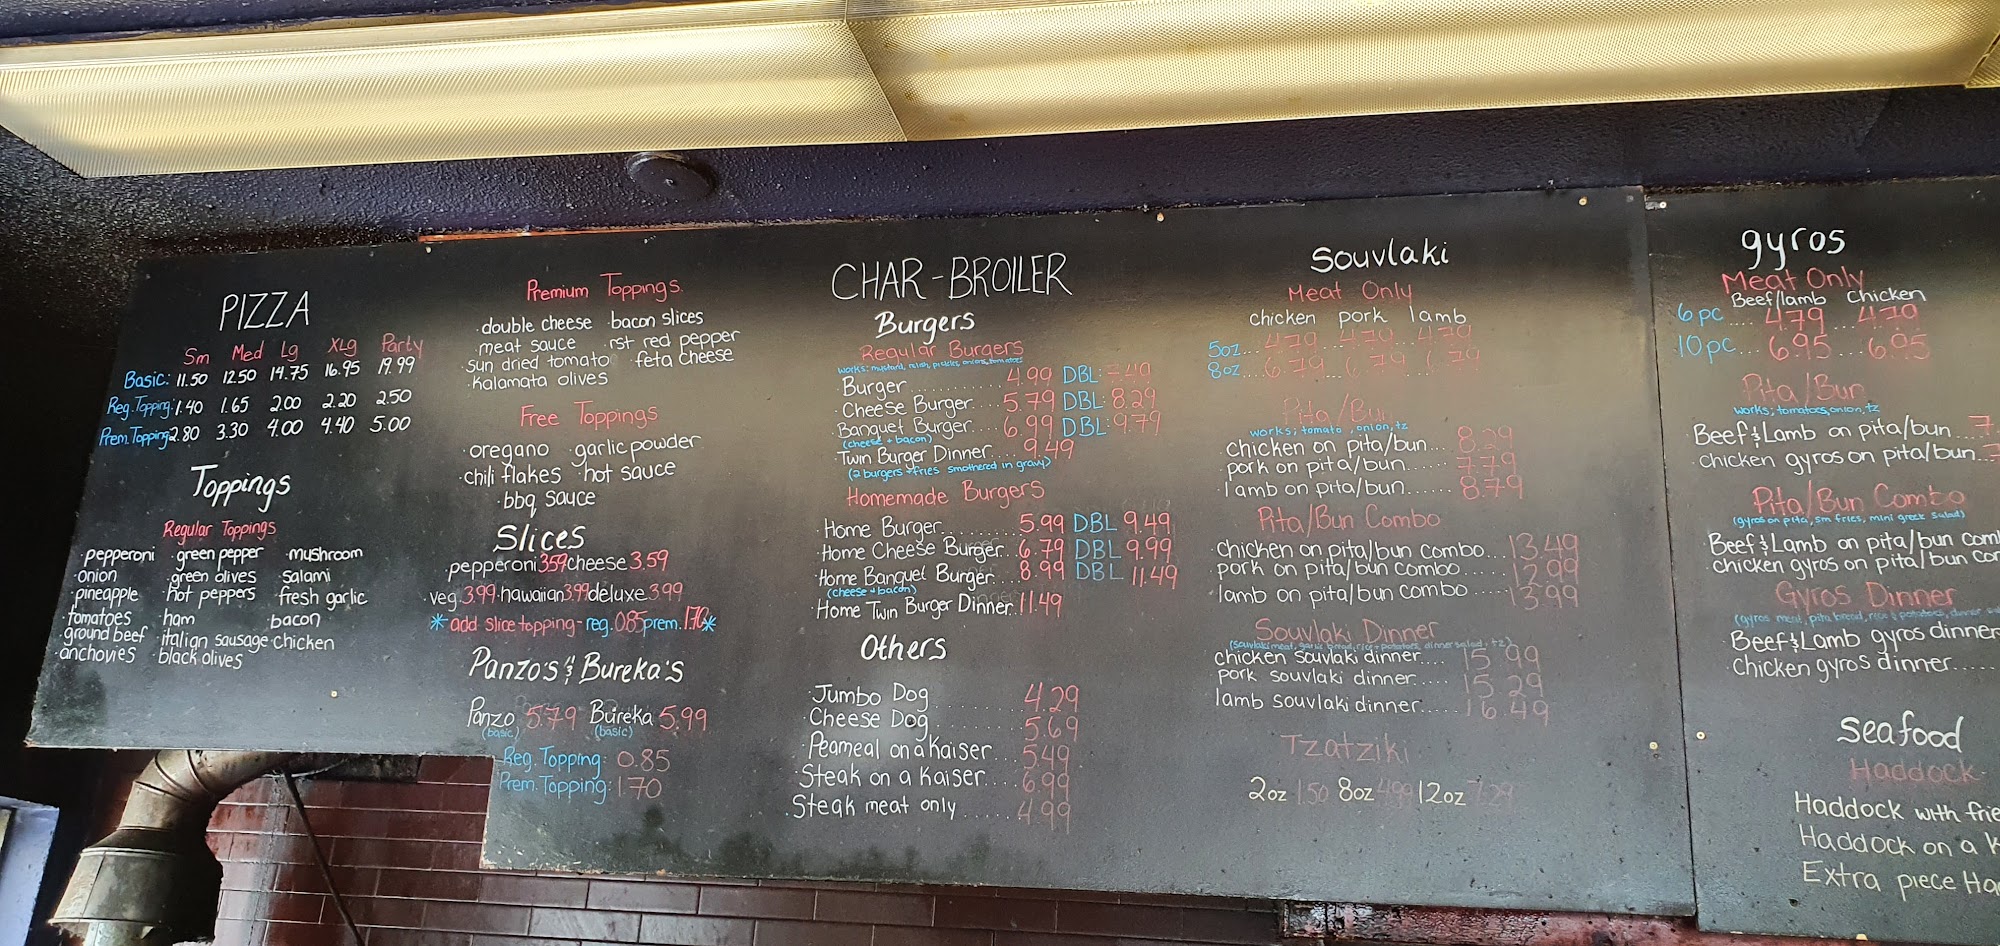 PIZZA
Sm Med Lg XLg Party
Basic: 11.50 12.50 14.75 16.95 19.99
Reg. Topping: 1.40 1.65 2.00 2.20 2.50
Prem. Topping 2.80 3.30 4.00 4.40 5.00
Toppings
Regular Toppings
· pepperoni · green pepper · mushroom
· onion · green olives · salami
· pineapple · hot peppers · fresh garlic
· tomatoes · ham · bacon
· ground beef · italian sausage · chicken
· anchovies · black olives
Premium Toppings
· double cheese · bacon slices
· meat sauce · rst red pepper
· sun dried tomato · feta cheese
· kalamata olives
Free Toppings
· oregano · garlic powder
· chili flakes · hot sauce
· bbq sauce
Slices
· pepperoni 3.59 cheese 3.59
· veg. 3.99 · hawaiian 3.99 deluxe 3.99
* add slice topping - reg. 0.85 prem. 1.70 *
Panzo's & Bureka's
Panzo 5.79 Bureka 5.99
(basic) (basic)
Reg. Topping: 0.85
Prem. Topping: 1.70
CHAR-BROILER
Burgers
Regular Burgers
works: mustard, relish, pickles, onions, tomatoes
· Burger 4.99 DBL: 7.49
· Cheese Burger 5.79 DBL: 8.29
· Banquet Burger 6.99 DBL: 9.79
(cheese + bacon)
Twin Burger Dinner 9.49
(2 burgers + fries smothered in gravy)
Homemade Burgers
· Home Burger 5.99 DBL 9.49
· Home Cheese Burger 6.79 DBL 9.99
· Home Banquet Burger 8.99 DBL 11.49
(cheese + bacon)
· Home Twin Burger Dinner 11.49
Others
· Jumbo Dog 4.29
· Cheese Dog 5.69
· Peameal on a Kaiser 5.49
· Steak on a Kaiser 6.99
Steak meat only 4.99
Souvlaki
Meat Only
chicken pork lamb
5oz... 4.79 4.79 4.79
8oz... 6.79 6.79 6.79
Pita/Bun
works; tomato, onion, tz
· Chicken on pita/bun... 8.29
· pork on pita/bun 7.79
· lamb on pita/bun 8.79
Pita/Bun Combo
· chicken on pita/bun combo... 13.49
· pork on pita/bun combo 12.99
· lamb on pita/bun combo 13.99
Souvlaki Dinner
chicken souvlaki dinner.... 15.99
pork souvlaki dinner 15.29
lamb souvlaki dinner 16.49
Tzatziki
2oz 1.50 8oz 4.99 12oz 7.29
gyros
Meat Only
Beef/lamb Chicken
6 pc .... 4.79 ... 4.79
10 pc ... 6.95 ... 6.95
Pita/Bun
works; tomatoes, onion, tz
· Beef & Lamb on pita/bun
· chicken gyros on pita/bun
Pita/Bun Combo
(gyros on pita, sm fries, mini greek salad)
· Beef & Lamb on pita/bun
· chicken gyros on pita/bun
Gyros Dinner
· Beef & Lamb gyros dinner
· Chicken gyros dinner
seafood
Haddock
Haddock with
Haddock on a
Extra piece